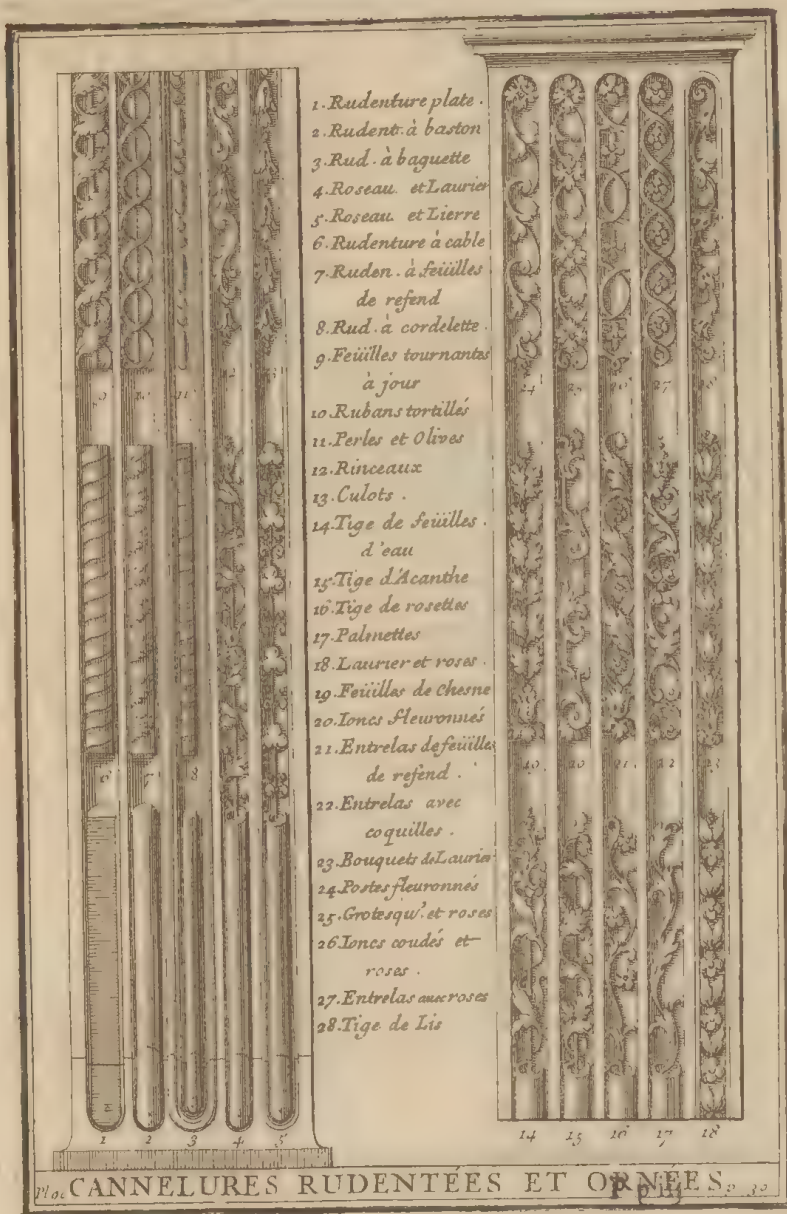 1. Rudenture plate.
2. Rudent. à baston
3. Rud. à baguette
4. Roseau et Laurier
5. Roseau et Lierre
6. Rudenture à cable
7. Ruden. à feüilles
de refend
8. Rud. à cordelette.
9. Feüilles tournantes
à jour
10. Rubans tortillés
11. Perles et Olives
12. Rinceaux
13. Culots.
14. Tige de feüilles.
d'eau
15. Tige d'Acanthe
16. Tige de rosettes
17. Palmettes
18. Laurier et roses.
19. Feüilles de Chesne
20. Ioncs fleuronnés
21. Entrelas de feüilles
de refend.
22. Entrelas avec
coquilles.
23. Bouquets de Laurier
24. Postes fleuronnés
25. Grotesqu.s et roses
26 Ioncs coudés et
roses.
27. Entrelas avec roses
28. Tige de Lis
10 11 12 13
6 7 8
1 2 3 4 5
24 25 26 27 28
19 20 21 22 23
14 15 16 17 18
CANNELURES RUDENTÉES ET ORNÉES.